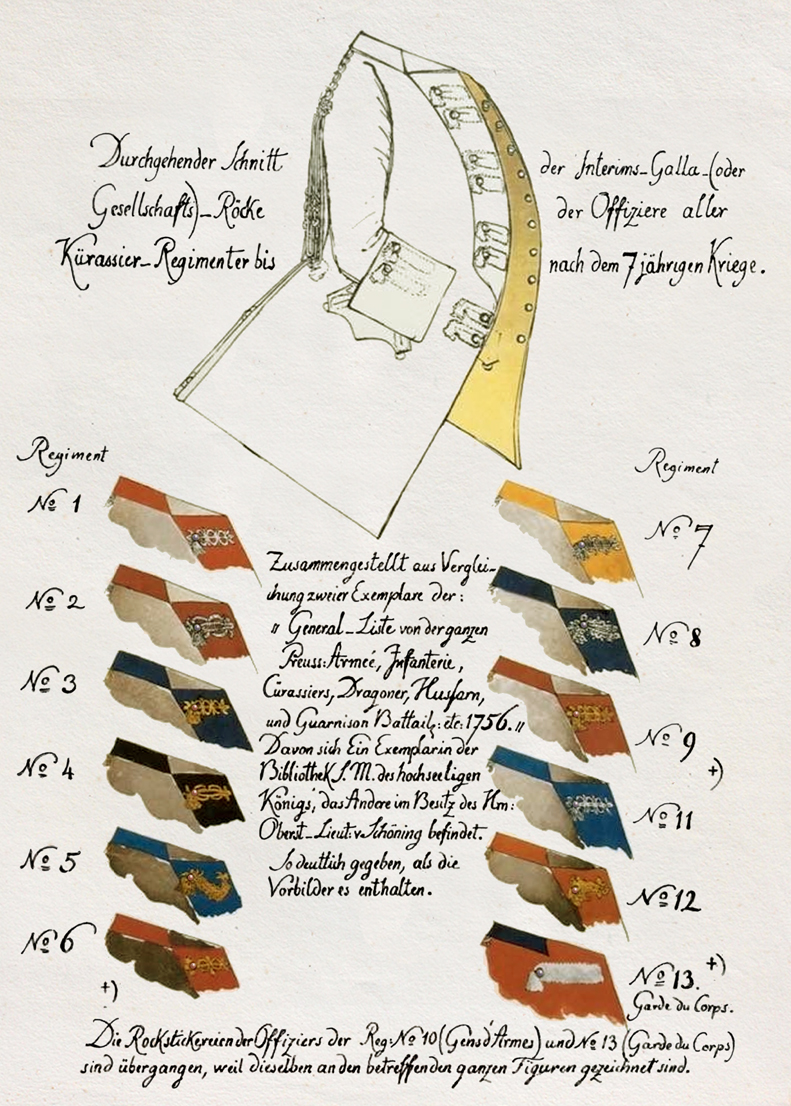 Durchgehender Schnitt
der Interims-Galla-(oder
Gesellschafts)-Röcke
der Offiziere aller
Kürassier-Regimenter bis
nach dem 7 jährigen Kriege.
Regiment
No 1
No 2
No 3
No 4
No 5
No 6
+)
Zusammengestellt aus Verglei-
chung zweier Exemplare der:
" General-Liste von der ganzen
Preuss: Armeé, Infanterie,
Cürassiers, Dragoner, Husfarn,
und Guarnison Battail: etc: 1756. "
Davon sich Ein Exemplar in der
Bibliothek S. M. des hochseeligen
Königs, das Andere im Besitz des Hrn:
Oberst-Lieut: v Schöning befindet.
So deutlich gegeben, als die
Vorbilder es enthalten.
Regiment
No 7
No 8
No 9
+)
No 11
No 12
No 13. +)
Garde du Corps.
Die Rockstickereien der Offiziers der Reg: No 10 (Gensd'Armes) und No 13 (Garde du Corps)
sind übergangen, weil dieselben an den betreffenden ganzen Figuren gezeichnet sind.